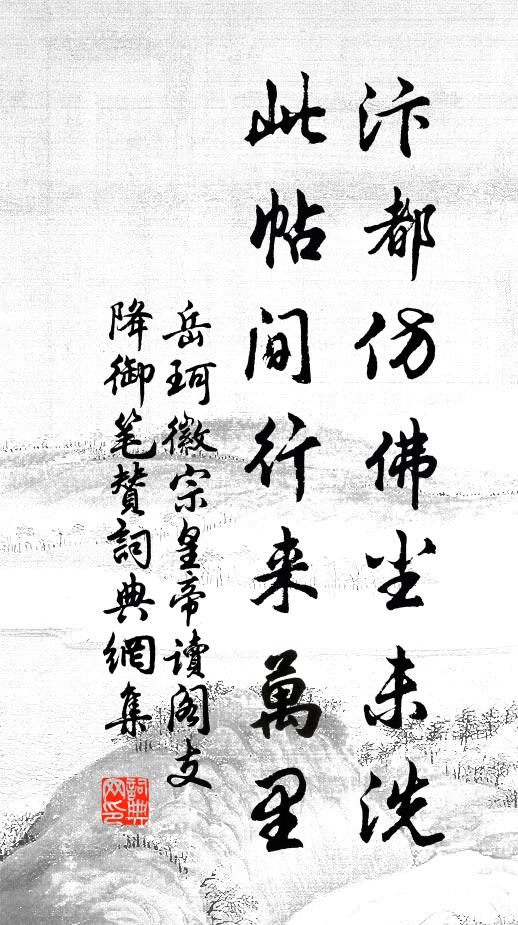 汴都仿佛尘未洗
此帖间行来萬里
岳珂徽宗皇帝读阁支
降御笔赞词典網集
詞典网印